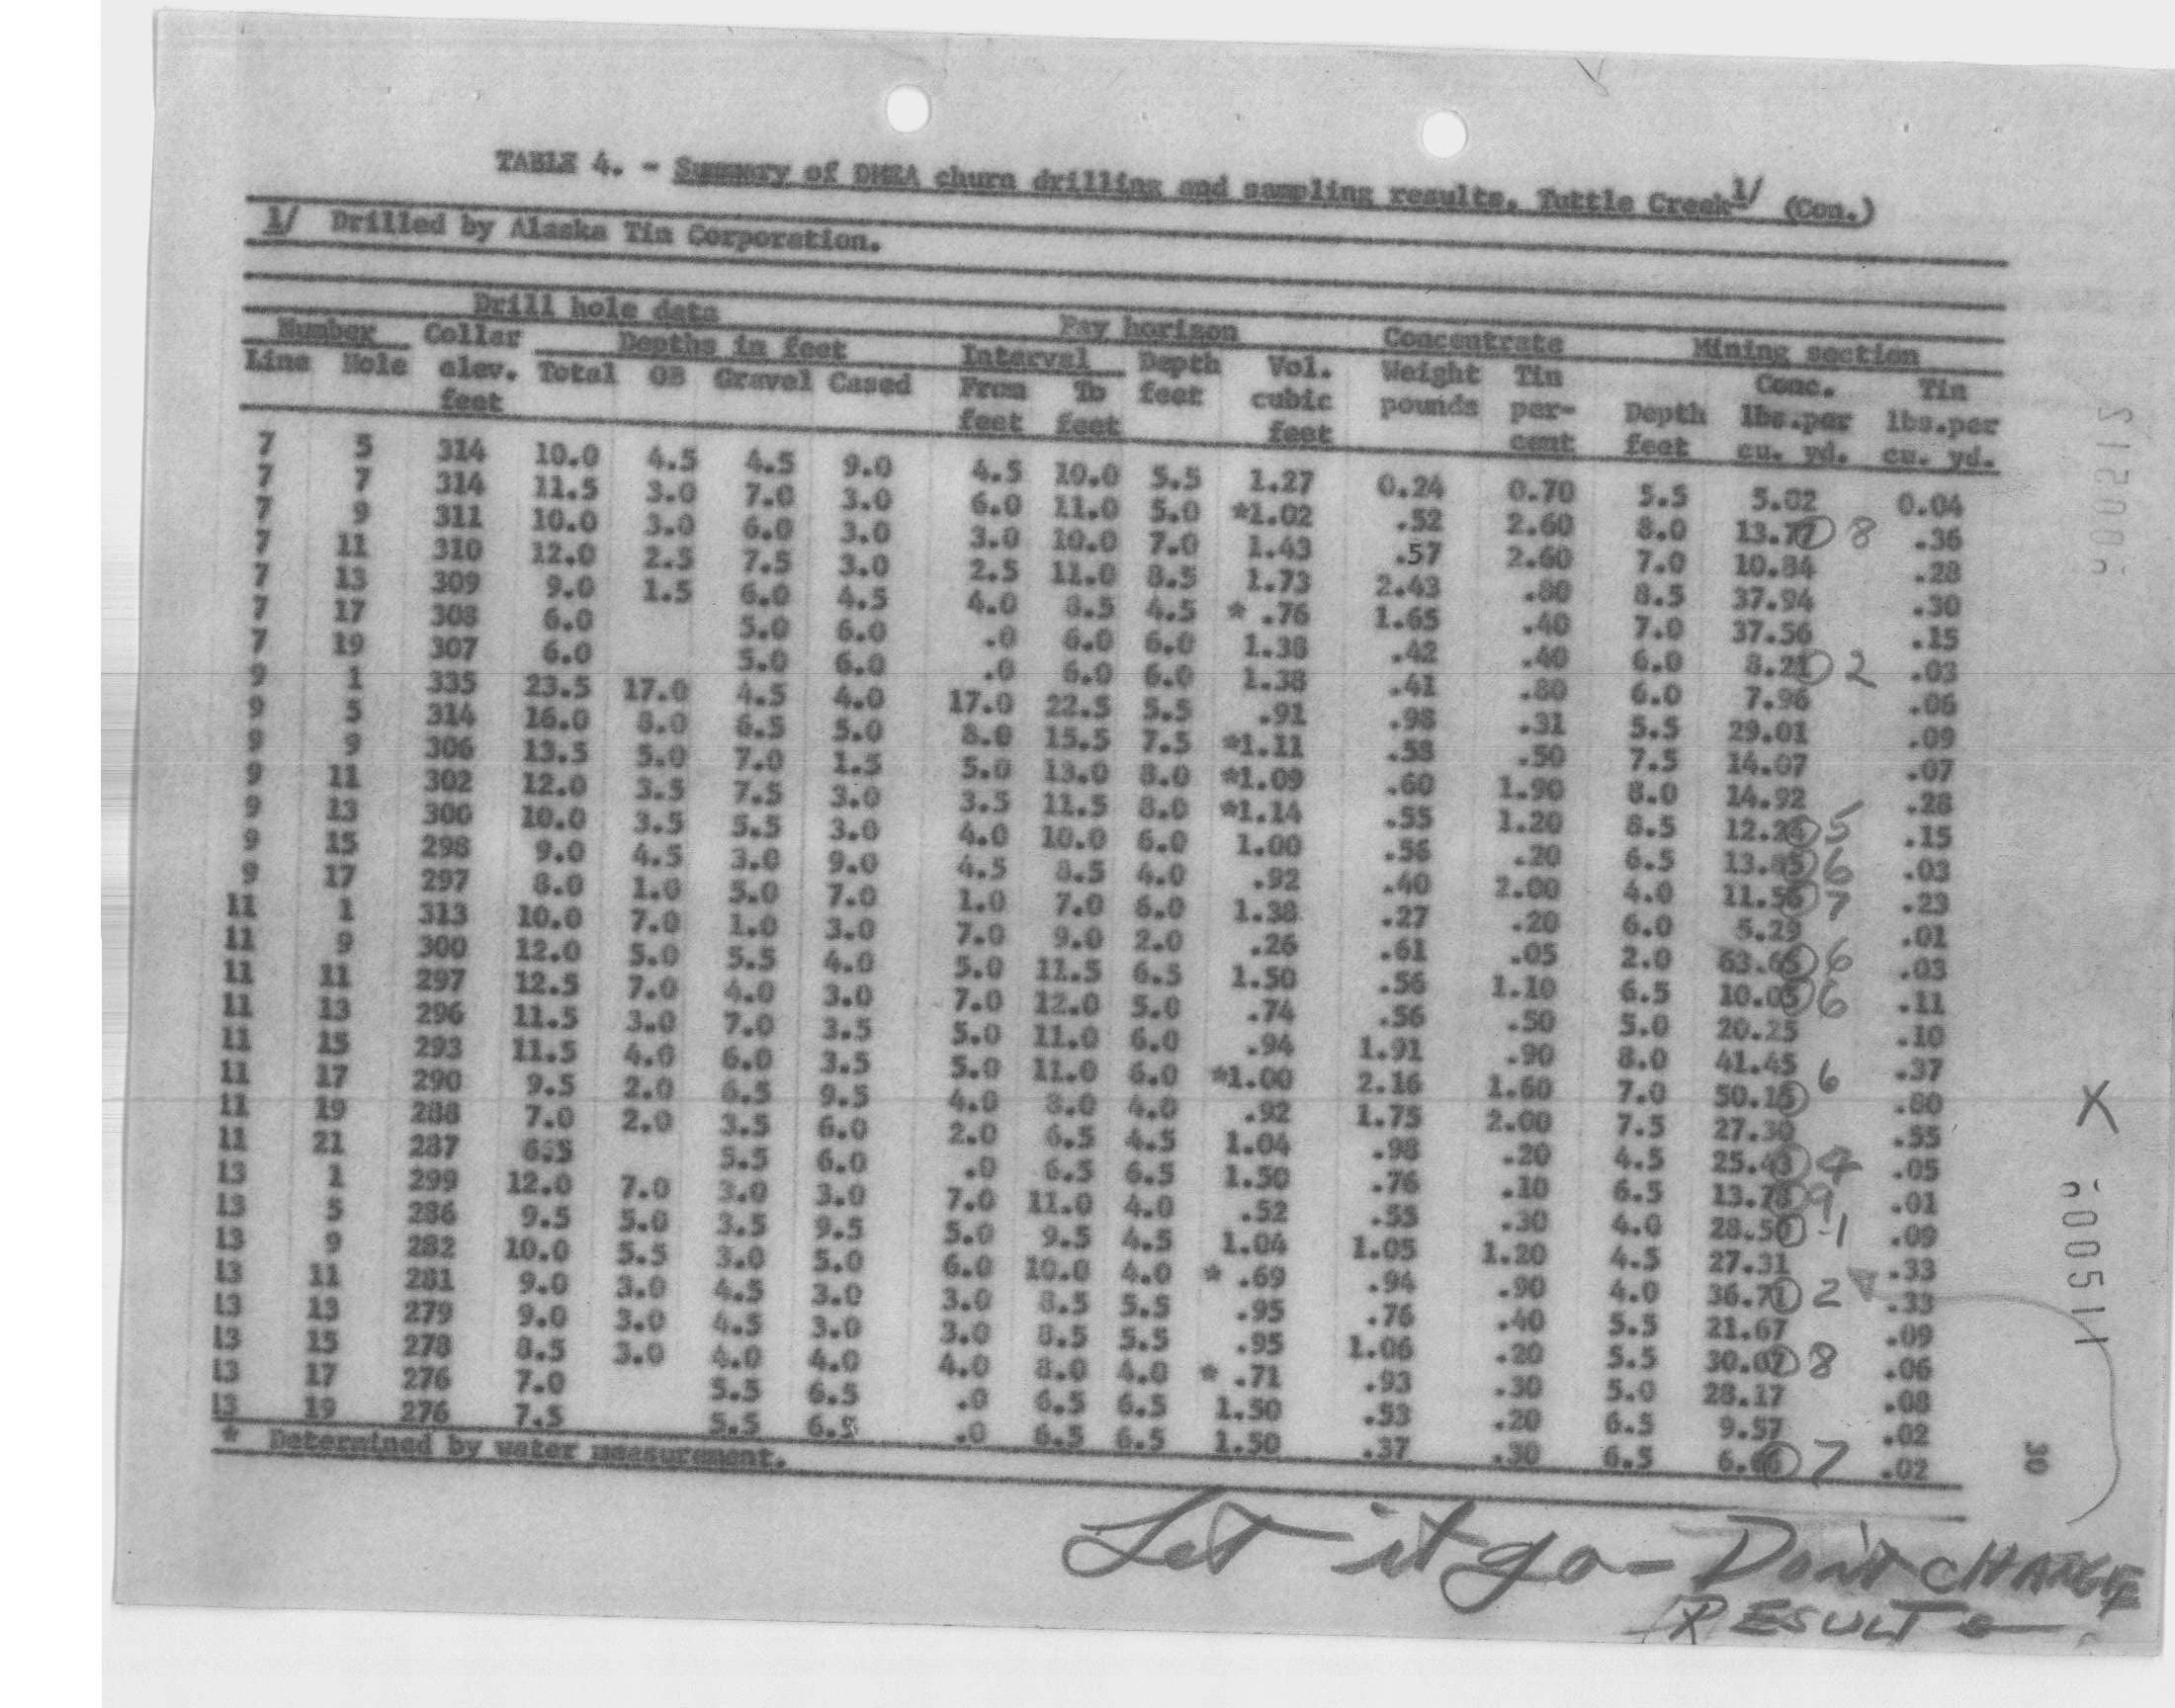 TABLE 4. - Summary of DMEA churn drilling and sampling results, Tuttle Creek 1/ (Con.)
1/ Drilled by Alaska Tin Corporation.
Drill hole data Pay horizon Concentrate Mining section
Number Collar Depths in feet Interval Depth Vol. Weight Tin Conc. Tin
Line Hole elev. Total OB Gravel Cased From To feet cubic pounds per- Depth lbs.per lbs.per
feet feet feet feet cent feet cu. yd. cu. yd.
7 5 314 10.0 4.5 4.5 9.0 4.5 10.0 5.5 1.27 0.24 0.70 5.5 5.02 0.04
7 7 314 11.5 3.0 7.0 3.0 6.0 11.0 5.0 *1.02 .52 2.60 8.0 13.77 8 .36
7 9 311 10.0 3.0 6.0 3.0 3.0 10.0 7.0 1.43 .57 2.60 7.0 10.84 .28
7 11 310 12.0 2.5 7.5 3.0 2.5 11.0 8.5 1.73 2.43 .80 8.5 37.94 .30
7 13 309 9.0 1.5 6.0 4.5 4.0 8.5 4.5 * .76 1.65 .40 7.0 37.56 .15
7 17 308 6.0 5.0 6.0 .0 6.0 6.0 1.38 .42 .40 6.0 8.21 2 .03
7 19 307 6.0 5.0 6.0 .0 6.0 6.0 1.38 .41 .80 6.0 7.96 .06
9 1 335 23.5 17.0 4.5 4.0 17.0 22.5 5.5 .91 .98 .31 5.5 29.01 .09
9 5 314 16.0 8.0 6.5 5.0 8.0 15.5 7.5 *1.11 .58 .50 7.5 14.07 .07
9 9 306 13.5 5.0 7.0 1.5 5.0 13.0 8.0 *1.09 .60 1.90 8.0 14.92 .28
9 11 302 12.0 3.5 7.5 3.0 3.5 11.5 8.0 *1.14 .55 1.20 8.5 12.26 5 .15
9 13 300 10.0 3.5 5.5 3.0 4.0 10.0 6.0 1.00 .56 .20 6.5 13.85 6 .03
9 15 298 9.0 4.5 3.0 9.0 4.5 8.5 4.0 .92 .40 2.00 4.0 11.56 7 .23
9 17 297 8.0 1.0 5.0 7.0 1.0 7.0 6.0 1.38 .27 .20 6.0 5.29 .01
11 1 313 10.0 7.0 1.0 3.0 7.0 9.0 2.0 .26 .61 .05 2.0 63.65 6 .03
11 9 300 12.0 5.0 5.5 4.0 5.0 11.5 6.5 1.50 .56 1.10 6.5 10.05 6 .11
11 11 297 12.5 7.0 4.0 3.0 7.0 12.0 5.0 .74 .56 .50 5.0 20.25 .10
11 13 296 11.5 3.0 7.0 3.5 5.0 11.0 6.0 .94 1.91 .90 8.0 41.45 .37
11 15 293 11.5 4.0 6.0 3.5 5.0 11.0 6.0 *1.00 2.16 1.60 7.0 50.15 6 .80
11 17 290 9.5 2.0 6.5 9.5 4.0 8.0 4.0 .92 1.75 2.00 7.5 27.30 .55
11 19 288 7.0 2.0 3.5 6.0 2.0 6.5 4.5 1.04 .98 .20 4.5 25.43 4 .05
11 21 287 6.5 5.5 6.0 .0 6.5 6.5 1.50 .76 .10 6.5 13.78 9 .01
13 1 299 12.0 7.0 3.0 3.0 7.0 11.0 4.0 .52 .55 .30 4.0 28.50 1 .09
13 5 286 9.5 5.0 3.5 9.5 5.0 9.5 4.5 1.04 1.05 1.20 4.5 27.31 .33
13 9 282 10.0 5.5 3.0 5.0 6.0 10.0 4.0 * .69 .94 .90 4.0 36.71 2 .33
13 11 281 9.0 3.0 4.5 3.0 3.0 8.5 5.5 .95 .76 .40 5.5 21.67 .09
13 13 279 9.0 3.0 4.5 3.0 3.0 8.5 5.5 .95 1.06 .20 5.5 30.07 8 .06
13 15 278 8.5 3.0 4.0 4.0 4.0 8.0 4.0 * .71 .93 .30 5.0 28.17 .08
13 17 276 7.0 5.5 6.5 .0 6.5 6.5 1.50 .53 .20 6.5 9.57 .02
13 19 276 7.5 5.5 6.5 .0 6.5 6.5 1.50 .37 .30 6.5 6.66 7 .02
* Determined by water measurement.
30
X
Let it go - DON'T CHANGE
RESULTS